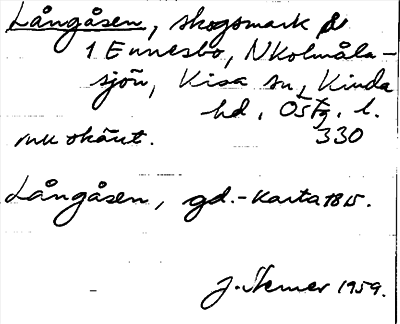 Långåsen, skogsmark på
1 Ennesbo, N Kolmåla-
sjön, Kisa sn, Kinda
hd, Östg. l.
nu okänt. 330
Långåsen, gd.-Karta 1815.
J. Stemer 1959.